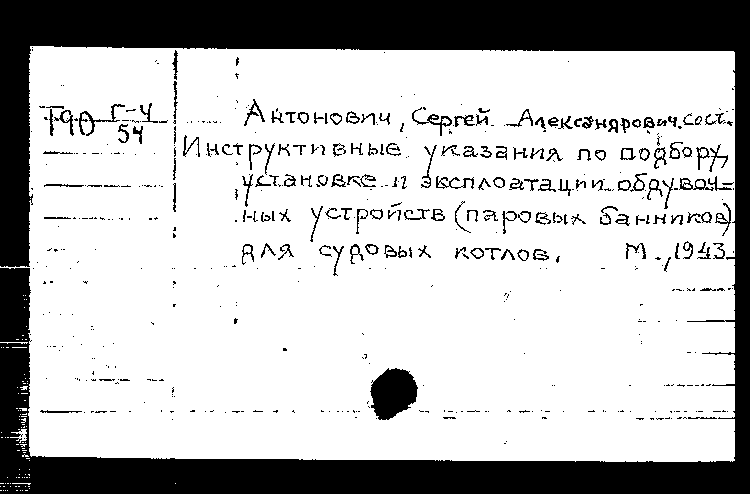 Г90 Г-4
54
Антонович, Сергей Александрович. сост.
Инструктивные указания по подбору,
установке и эксплоатации обдувоч=
ных устройств (паровых банников)
для судовых котлов. М., 1943